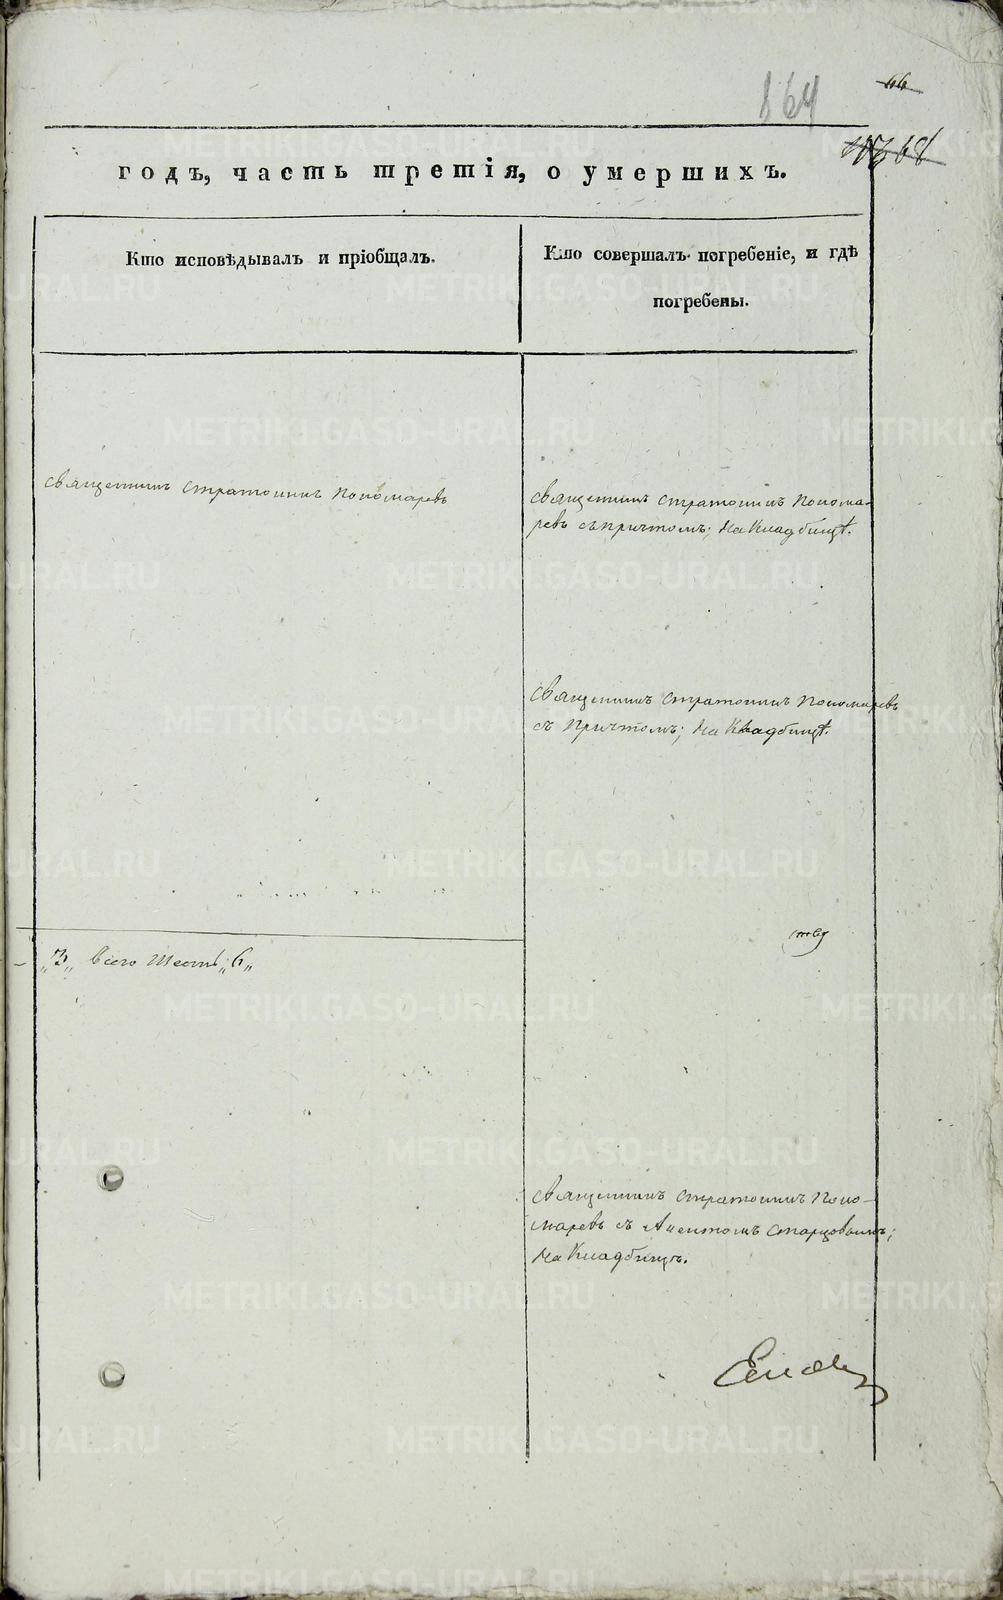 164
44
годъ, часть третія, о умершихъ.
Кто исповѣдывалъ и пріобщалъ.
Кто совершалъ погребеніе, и гдѣ
погребены.
священникъ Стратоникъ Пономаревъ
священникъ Стратоникъ Понома-
ревъ съ причтомъ; на Кладбищѣ.
священникъ Стратоникъ Пономаревъ
съ Причтомъ; на Кладбищѣ.
„3„ Всего Шесть „6„
священникъ Стратоникъ Поно-
маревъ съ Старцовымъ;
на Кладбищѣ.
METRIKI.GASO-URAL.RU